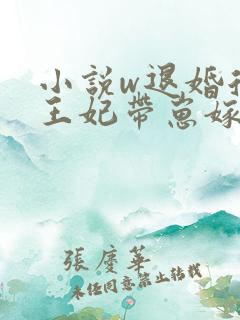 小說w退婚
王妃帶崽嫁
張慶華
未經同意禁止轉載